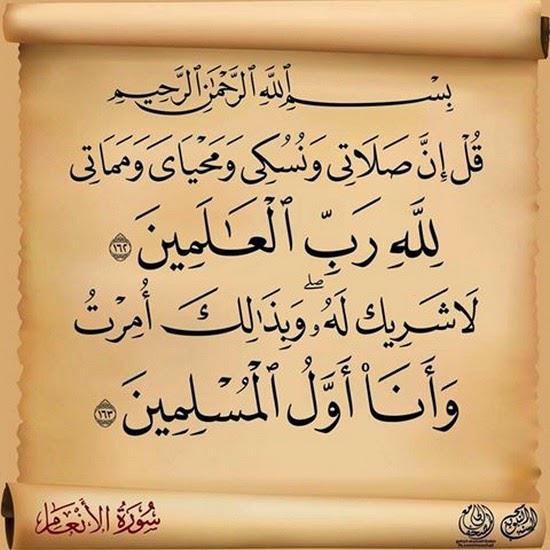 بِسْمِ ٱللَّهِ ٱلرَّحْمَٰنِ ٱلرَّحِيمِ
قُلْ إِنَّ صَلَاتِى وَنُسُكِى وَمَحْيَاىَ وَمَمَاتِى
لِلَّهِ رَبِّ ٱلْعَـٰلَمِينَ ١٦٢
لَا شَرِيكَ لَهُۥ ۖ وَبِذَٰلِكَ أُمِرْتُ
وَأَنَا۠ أَوَّلُ ٱلْمُسْلِمِينَ ١٦٣
سُورَةُ الأَنْعَامِ